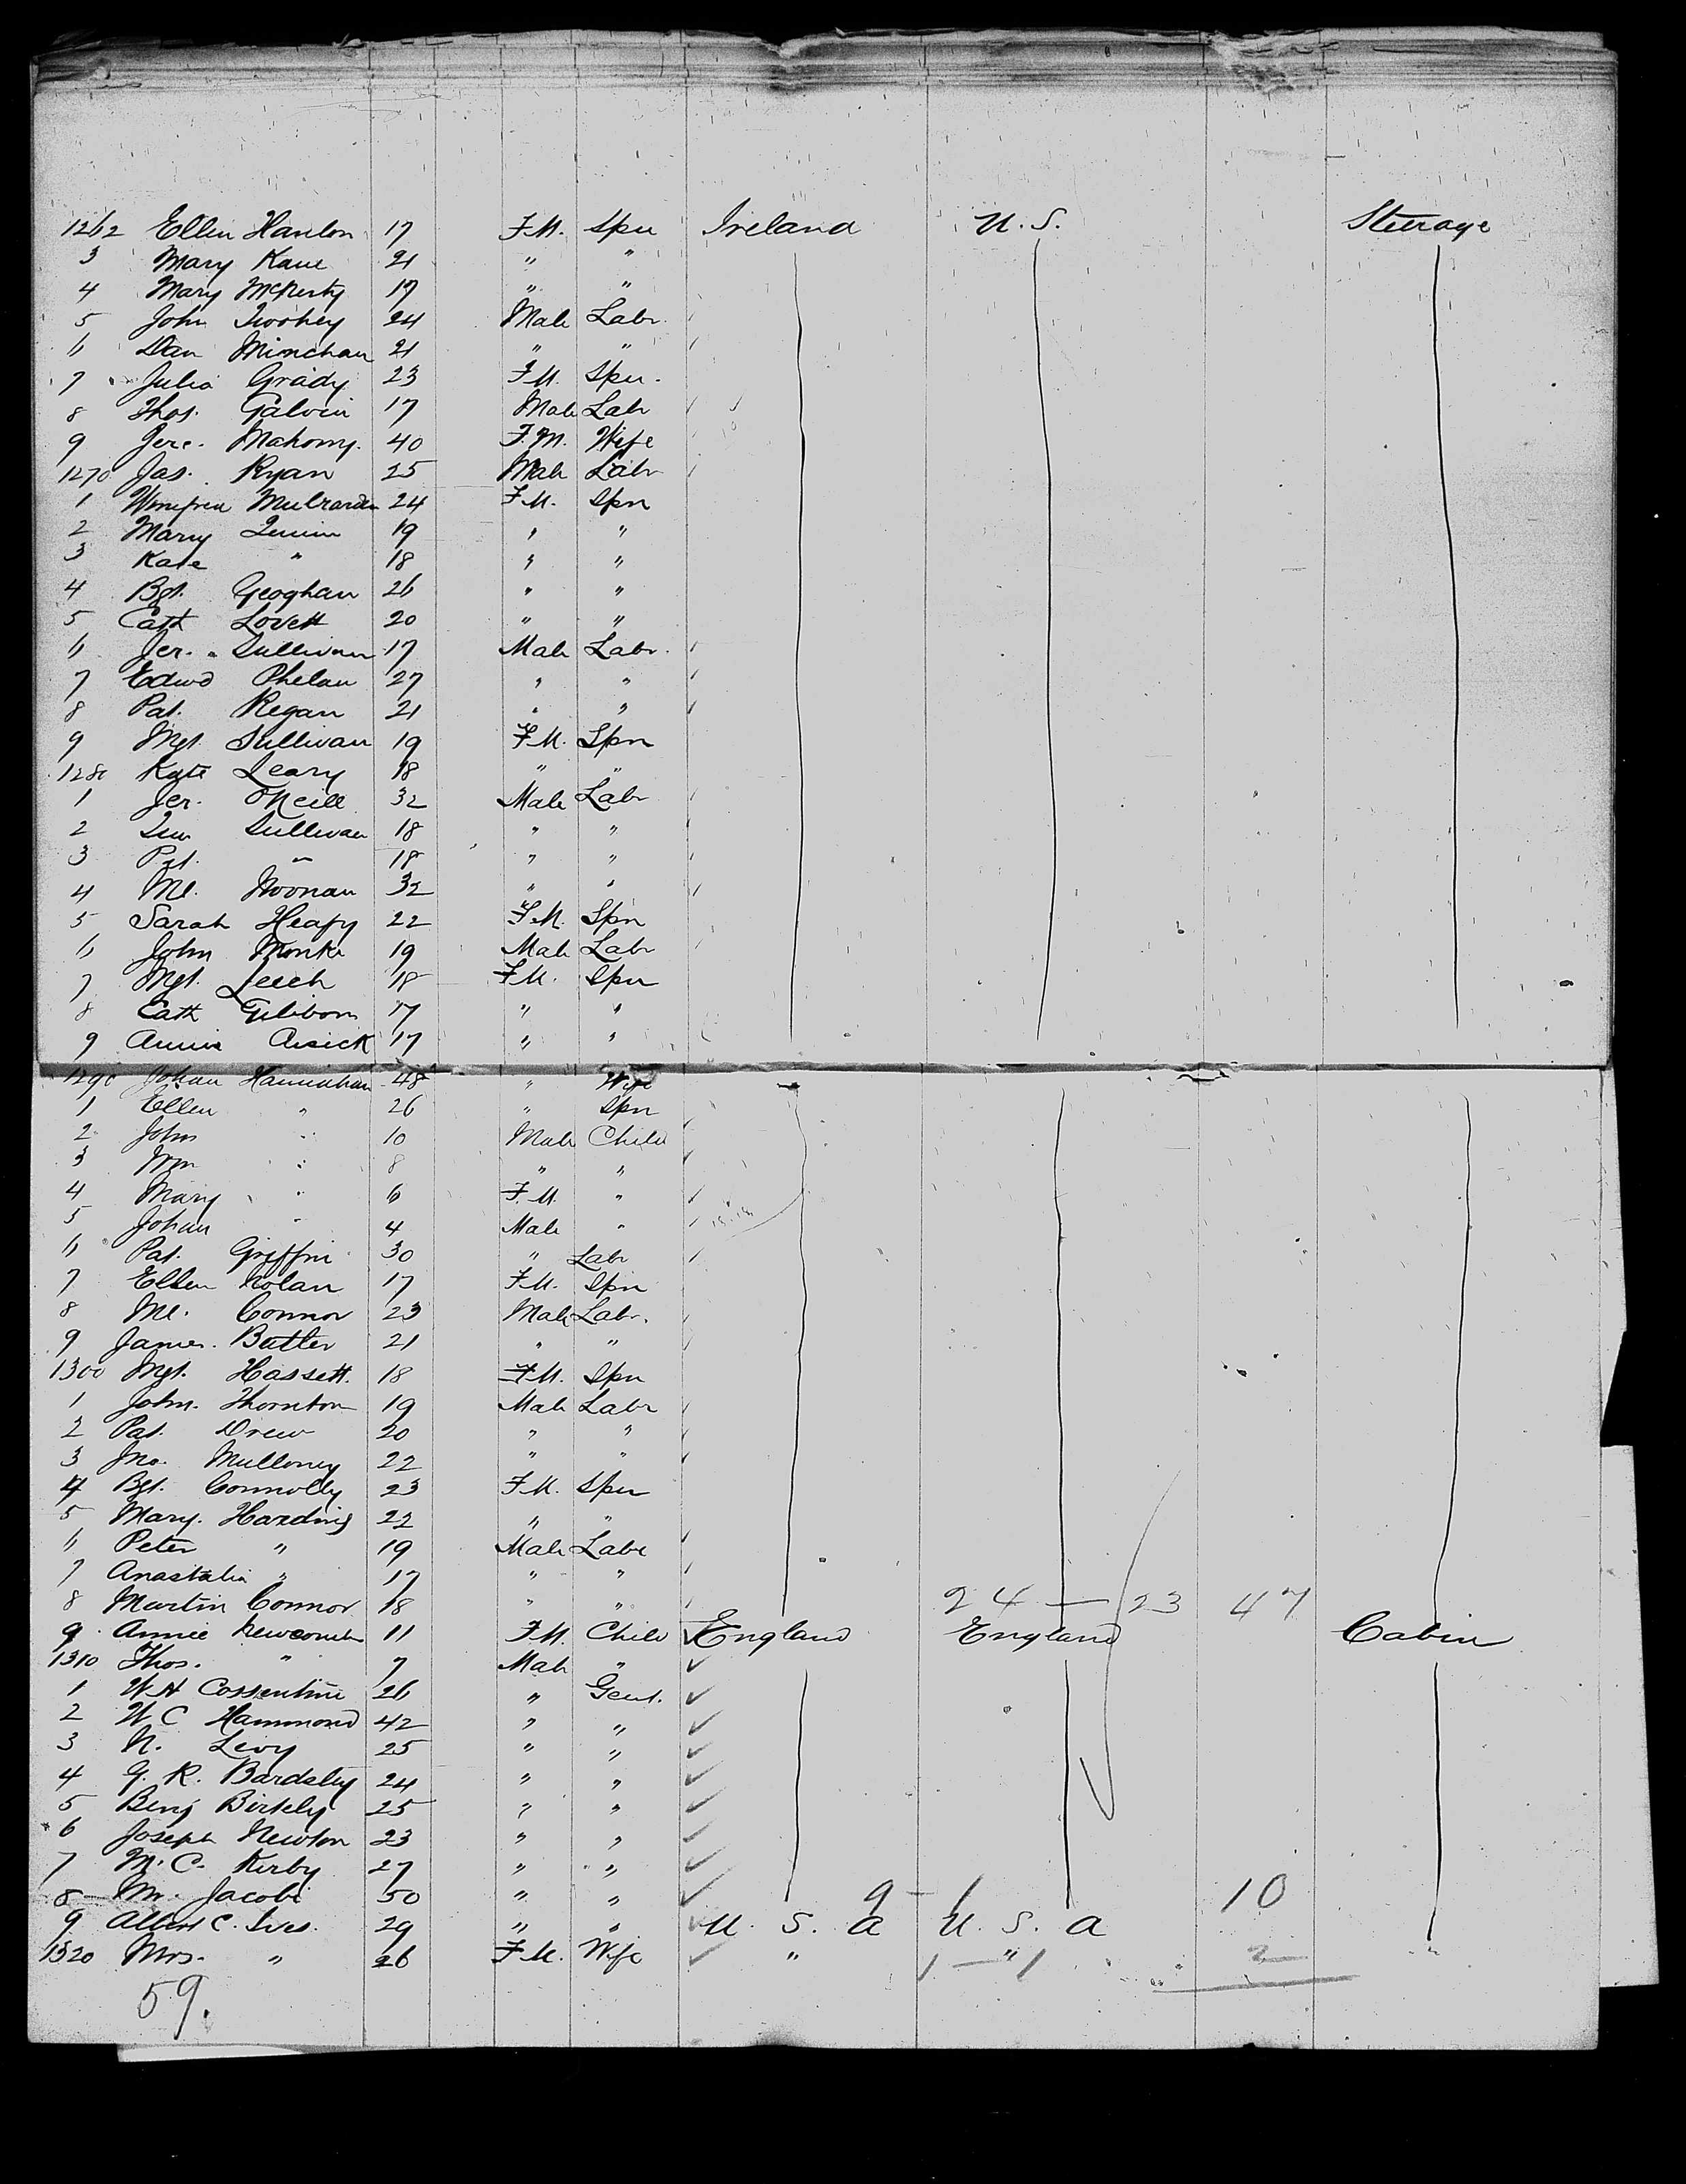 1262 Ellen Hanlon 17 F.M. Spn Ireland U.S. Steerage
3 Mary Kane 21 " "
4 Mary 19 " "
5 John Twohey 24 Male Labr
6 Dan Minchan 21 " "
7 Julia Grady 23 F.M. Spn.
8 Thos. Galvin 17 Male Labr
9 Jere. Mahony. 40 F.M. Wife
1270 Jas. Ryan 25 Male Labr
1 24 F.M. Spn
2 Mary Quinn 19 " "
3 Kate " 18 " "
4 Bgt. Geoghan 26 " "
5 Cath Lovett 20 " "
6 Jer. Sullivan 17 Male Labr.
7 Edwd Phelan 27 " "
8 Pat. Regan 21 " "
9 Mgt. Sullivan 19 F.M. Spn
1280 Kate Leary 18 " "
1 Jer. O'Neill 32 Male Labr
2 Sullivan 18 " "
3 Pat. " 18 " "
4 Ml. Noonan 32 " "
5 Sarah Heafy 22 F.M. Spn
6 John Monks 19 Male Labr
7 Mgt. Leech 18 F.M. Spn
8 Cath 17 " "
9 Annie Cusick 17 " "
1290 Johan Hannahan 48 " Wife
1 Ellen " 26 " Spn
2 John " 10 Male Child
3 Wm " 8 " "
4 Mary " 6 F.M. "
5 Johan " 4 Male "
6 Pat. Griffin 30 " Labr
7 Ellen Nolan 17 F.M. Spn
8 Ml. Connor 23 Male Labr.
9 James. Butler 21 " "
1300 Mgt. Hassett. 18 F.M. Spn
1 John. Thornton 19 Male Labr
2 Pat. Drew 20 " "
3 Jno. Mulloney 22 " "
4 Bgt. Connolly 23 F.M. Spn
5 Mary. Harding 22 " "
6 Peter " 19 Male Labr
7 Anastatia " 17 " "
8 Martin Connor 18 " " 24 — 23 47
9 Annie Newcomb 11 F.M. Child England England Cabin
1310 Thos. " 7 Male "
1 W H Cossentine 26 " Gent.
2 W C Hammond 42 " "
3 N. Levy 25 " "
4 G. R. Bardsley 24 " "
5 Benj 25 " "
6 Joseph Newton 23 " "
7 M. C. Kirby 27 " "
8 Mr. Jacobi 50 " " 9 - 1 10
9 Albert C. Ives. 29 " " U. S. A U. S. A
1320 Mrs. " 26 F.M. Wife " 1 — " 1 2 "
59.